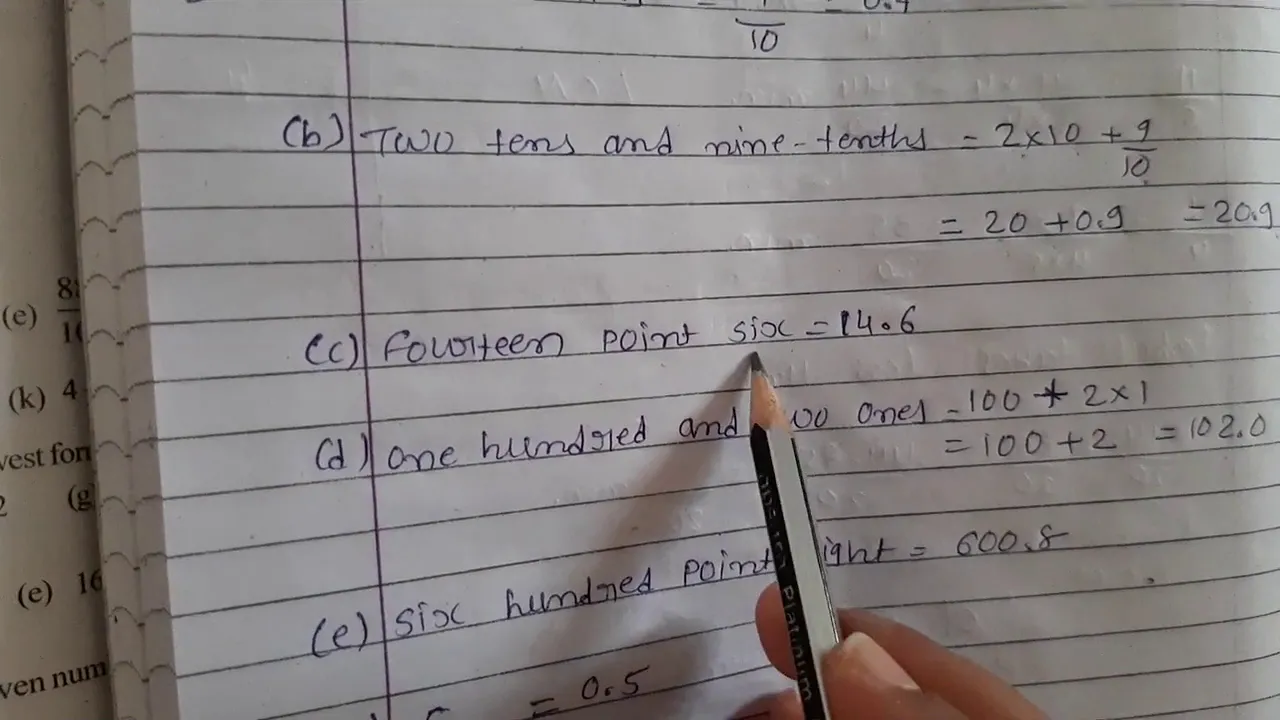 10
(b) Two tens and nine-tenths = 2×10 + 9/10
= 20 + 0.9 = 20.9
(c) Fourteen point six = 14.6
(d) One hundred and two ones = 100 + 2×1
= 100 + 2 = 102.0
(e) Six hundred point eight = 600.8
= 0.5
(e)
(k) 4
(g)
(e) 16
ven num
Platinum